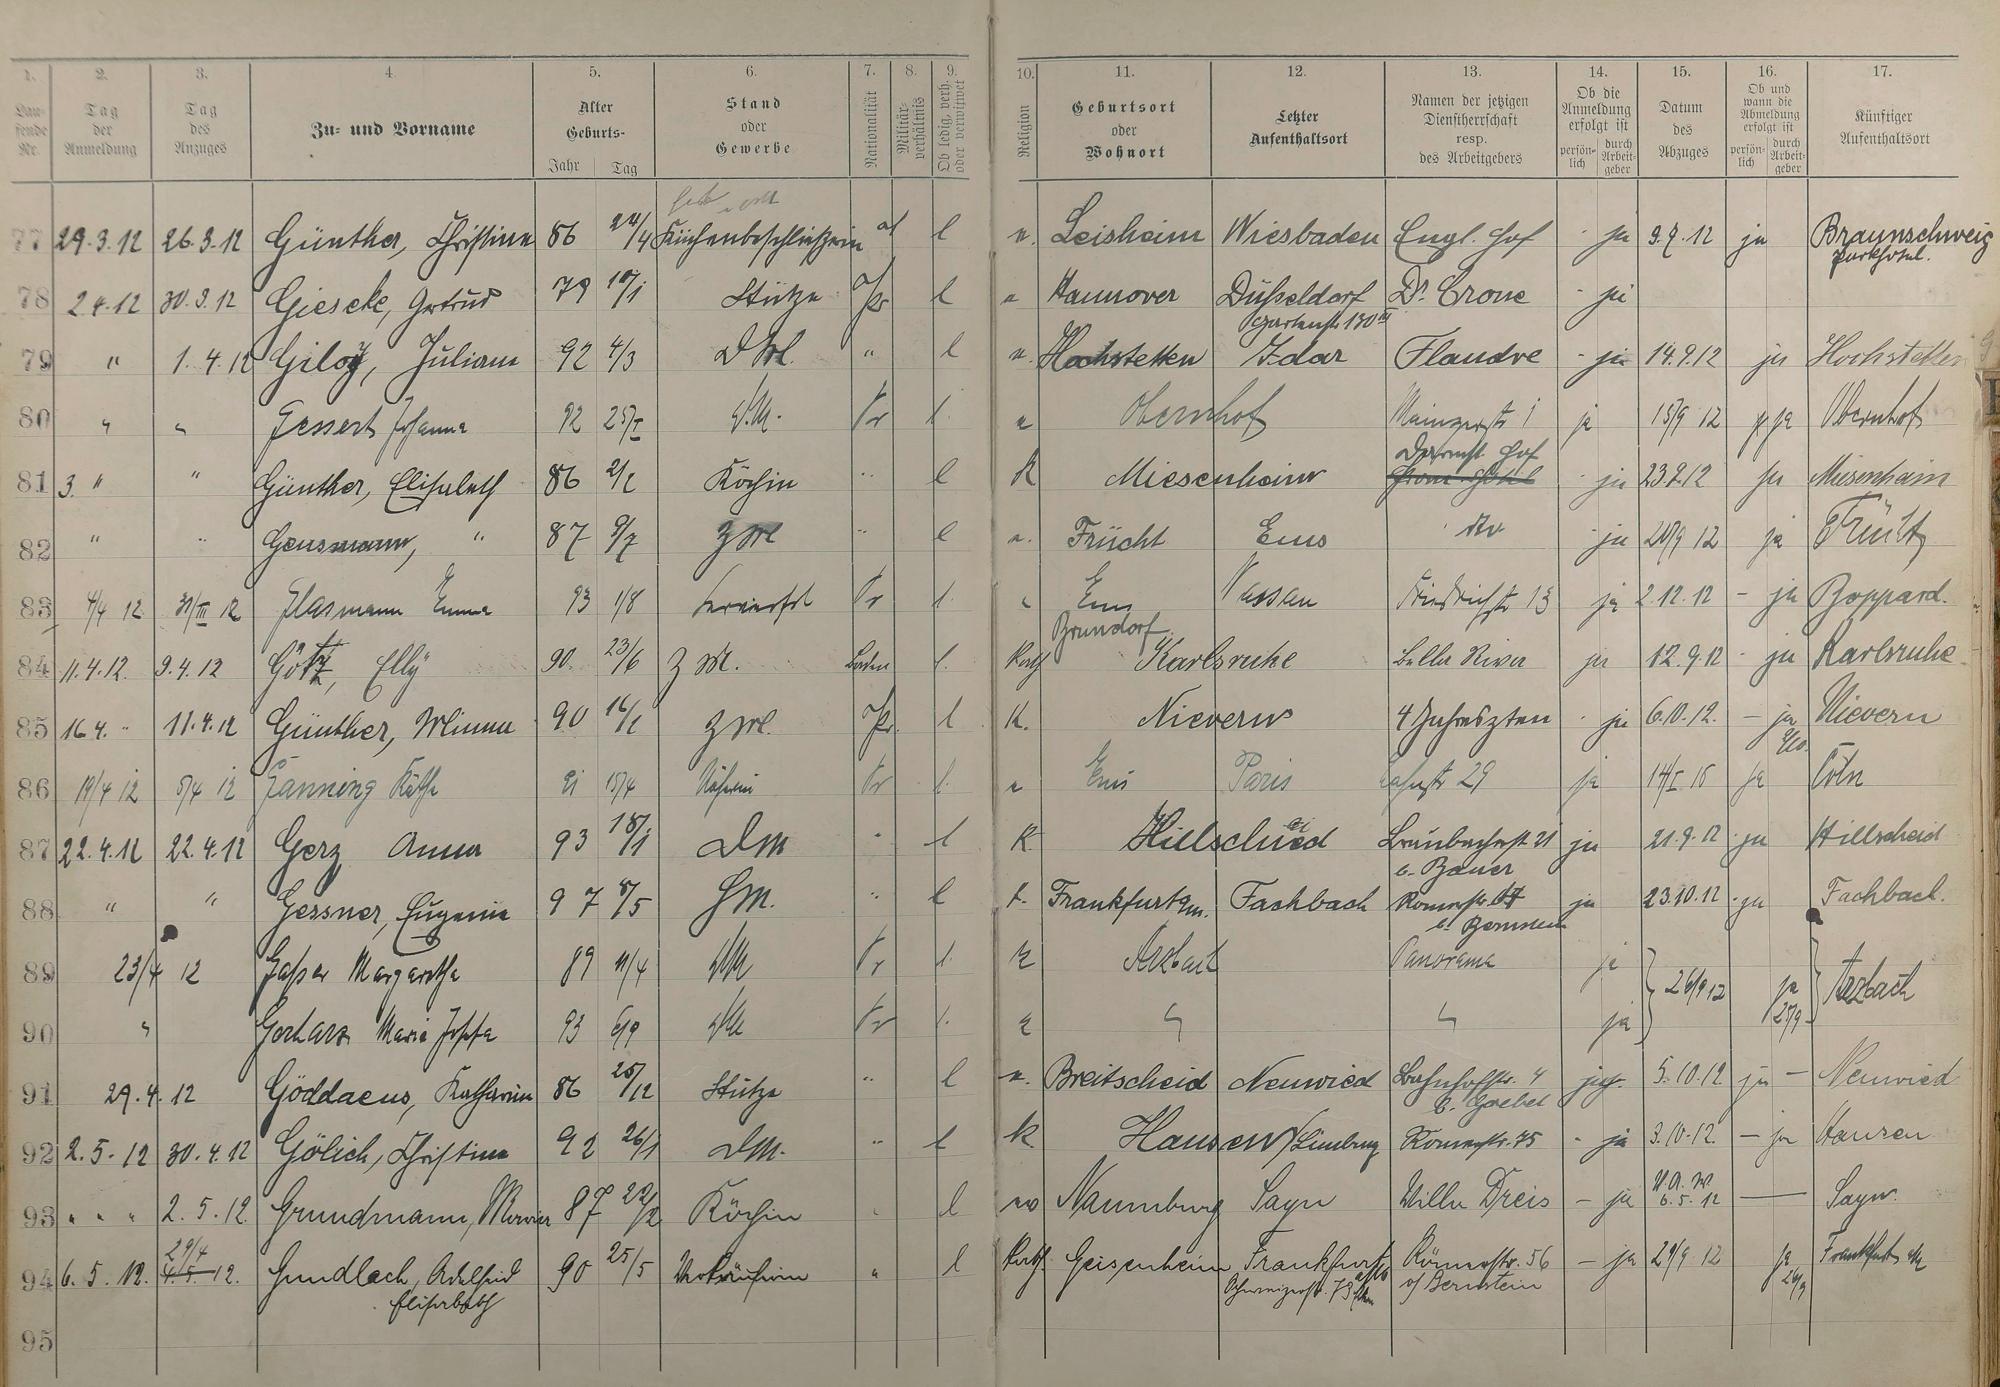 1. 2. 3. 4. 5. 6. 7. 8. 9. 10. 11. 12. 13. 14. 15. 16. 17.
Laufende Nr. Tag der Anmeldung Tag des Anzuges Zu- und Vorname Alter Geburts- Jahr Tag Stand oder Gewerbe Nationalität Militärverhältnis Ob ledig, verh. oder verwitwet Religion Geburtsort oder Wohnort Letzter Aufenthaltsort Namen der jetzigen Dienstherrschaft resp. des Arbeitgebers Ob die Anmeldung erfolgt ist persönlich durch Arbeitgeber Datum des Abzuges Ob und wann die Abmeldung erfolgt ist persönlich durch Arbeitgeber Künftiger Aufenthaltsort
77 29.3.12 26.3.12 Günther, Christine 86 24/4 Küchenbeschließerin l Leisheim Wiesbaden Engl. Hof - ja 9.9.12 ja Braunschweig
Parkhotel.
78 2.4.12 30.3.12 Giesecke, Gertrud 79 10/1 Stütze Pr l Hannover Düsseldorf Dr. Crone - ja
Gartenstr. 130 III
79 " 1.4.12 Giloy, Juliane 92 4/3 D M. " l Hochstetten Idar Flandre - ja 14.9.12 ja Hochstetten
80 " " Gessert Johanna 92 25/I D.M. Pr l. Obernhof Mainzerstr 1 ja 15/9 12 ja Obernhof
81 3. " " Günther, Elisabeth 86 2/2 Köchin " l K Miesenheim Darmst. Hof - ja 23.9.12 ja Miesenheim
82 " " Gensmann, " 87 9/7 Z M " l Frücht Ems dto - ja 20/9 12 ja Frücht
83 4/4 12 31/III 12 Glasmann Emma 93 1/8 Pr l. Ems Nassau Friedrichstr 13 ja 2.12.12 - ja Boppard.
84 11.4.12. 9.4.12 Götz, Elly 90. 23/6 Z M. Baden l. Kath Karlsruhe Bella Riva ja 12.9.12 - ja Karlsruhe
85 16.4. " 11.4.12 Günther, Minna 90 16/1 Z M. Pr. l K. Nievern 4 Jahreszten - ja 6.10.12. - ja Nievern
86 19/4 12 5/4 12 Ganning Käthe 91 15/4 Näherin Pr l. Ems Paris 29 ja ja Cöln
87 22.4.12 22.4.12 Gerz Anna 93 18/1 DM " l K Hillscheid 21 ja 21.9.12 ja Hillscheid
b. Bauer
88 " " Gessner, Eugenie 97 8/5 HM. " l Frankfurt a.m. Fachbach Römerstr. ja 23.10.12 - ja Fachbach.
b. Bernstein
89 23/4 12 Margaretha 89 11/4 DM Pr l. Arzbach Panorama ja 26/9 12 ja 25/9 Arzbach
90 " Gerharz Maria Josefa 93 6/9 DM Pr l. " " ja
91 29.4.12 Göddaeus, Katharina 86 25/12 Stütze " l Breitscheid Neuwied Bahnhofstr. 4 5.10.12 ja - Neuwied
b. Goebel
92 2.5.12 30.4.12 Gölich, Christine 92 26/1 DM. " l k Hausen/Limburg Römerstr. 75 - ja 3.10.12. - ja Hausen
93 " " " 2.5.12. Grundmann, 87 22/2 Köchin l Naumburg Sayn Villa Dreis - ja 6.5.12 — Sayn.
94 6.5.12. 29/4 12. Gundlach, Adelheid 90 25/5 Verkäuferin " l Kath Geisenheim Frankfurt Römerstr. 56 - ja 29/9 12 ja 26/9 Frankfurt
Elisabeth 73 b/ Bernstein
95